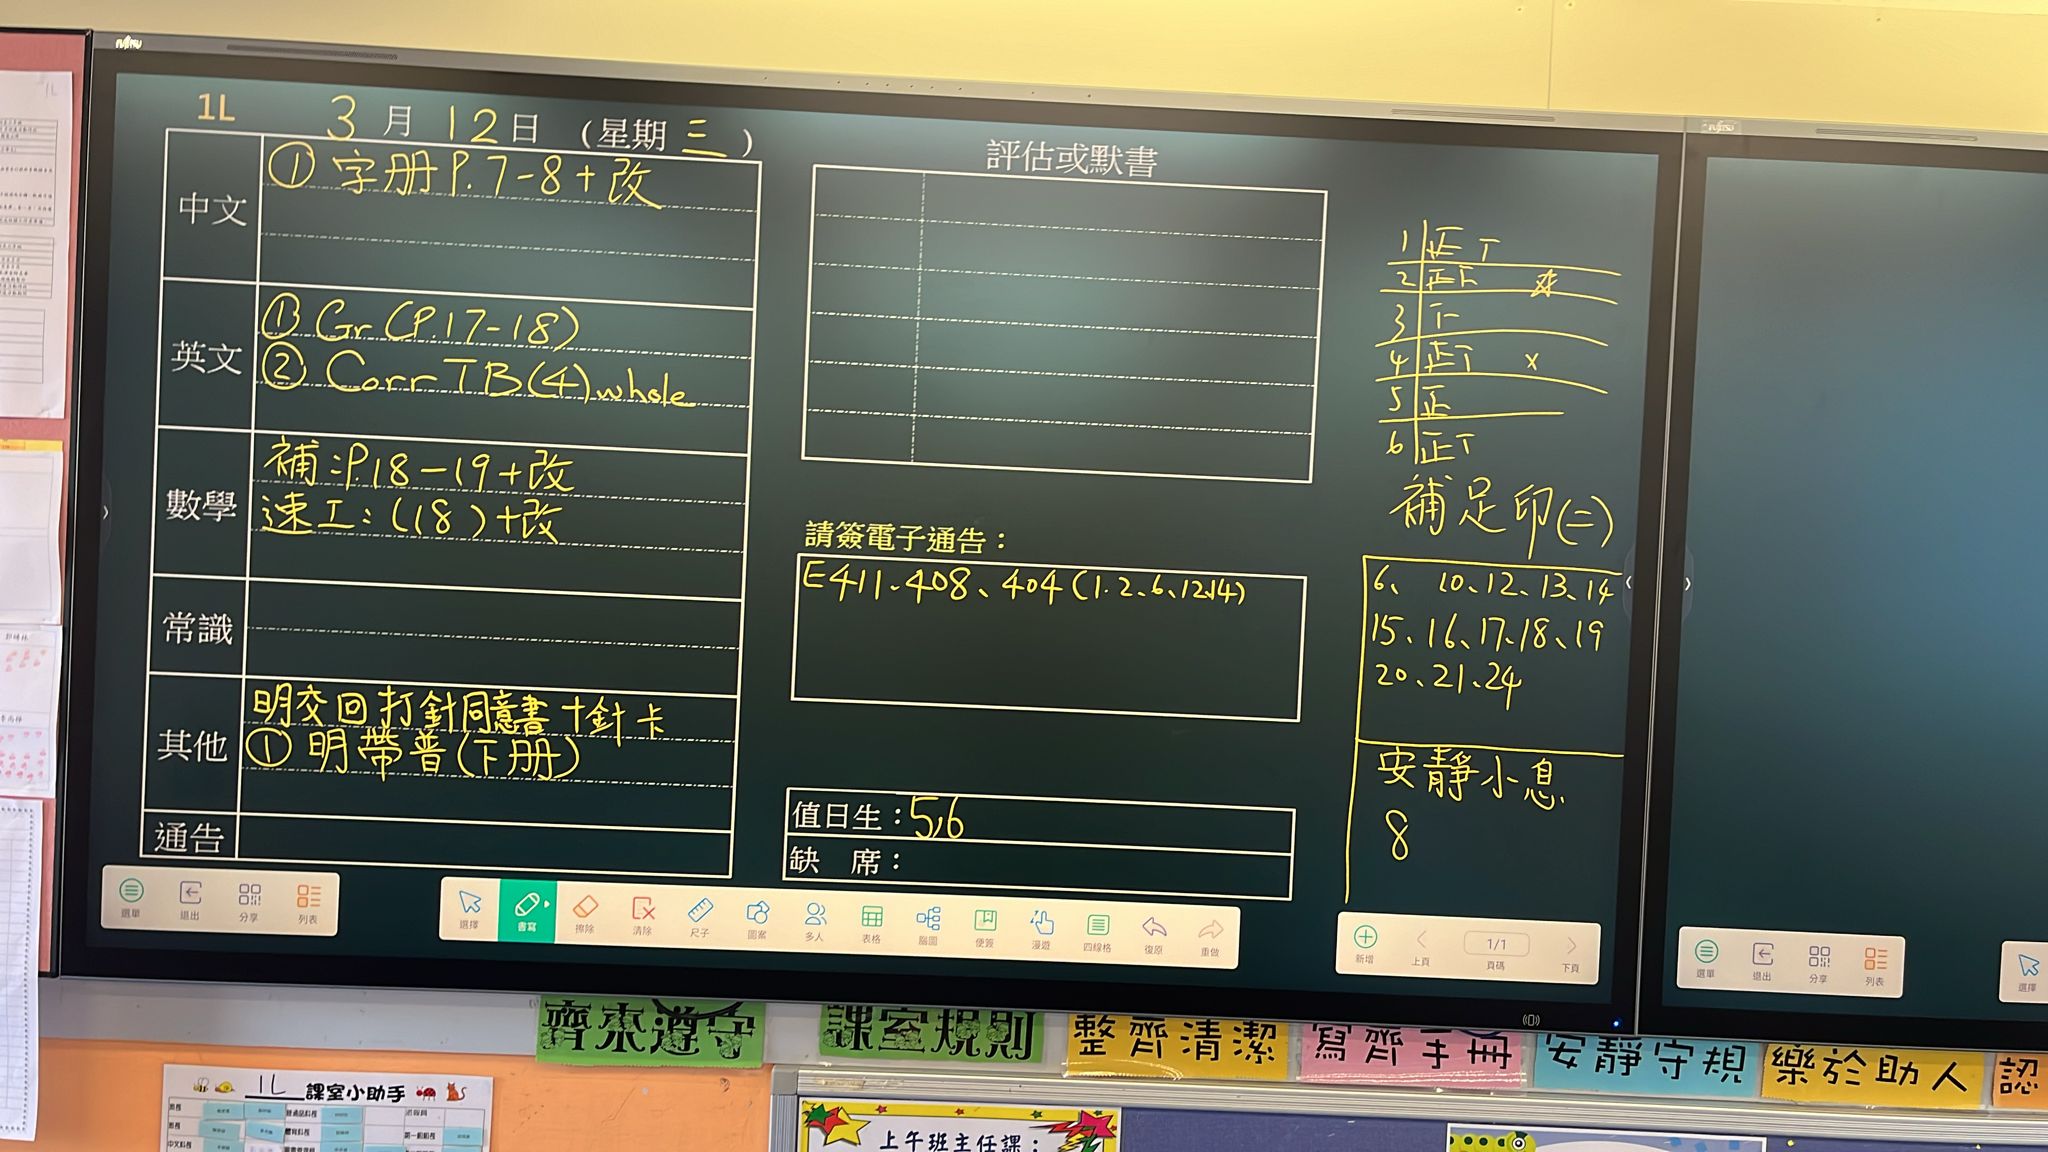 FUJITSU
1L 3月12日(星期三)
中文
①字册P.7-8+改
英文
①Gr(P.17-18)
②Corr TB(4)whole
數學
補:P.18-19+改
速工:(18)+改
常識
其他
明交回打針同意書+針卡
①明帶普(下册)
通告
評估或默書
請簽電子通告:
E411、408、404(1.2、6、12、14)
值日生:5,6
缺 席:
1 正丅
2 正
3
4 正丅 x
5 正
6 正丅
補足印(二)
6、 10、12、13、14
15、16、17、18、19
20、21、24
安靜小息
8
選單 退出 分享 列表
選擇 書寫 擦除 清除 尺子 圖案 多人 表格 腦圖 便簽 漫遊 四線格 復原 重做
新增 上頁 1/1 頁碼 下頁
FUJITSU
選單 退出 分享 列表
選擇
齊來遵守 課室規則 整齊清潔 寫齊手冊 安靜守規 樂於助人 認
1L 課室小助手
上午班主任課: